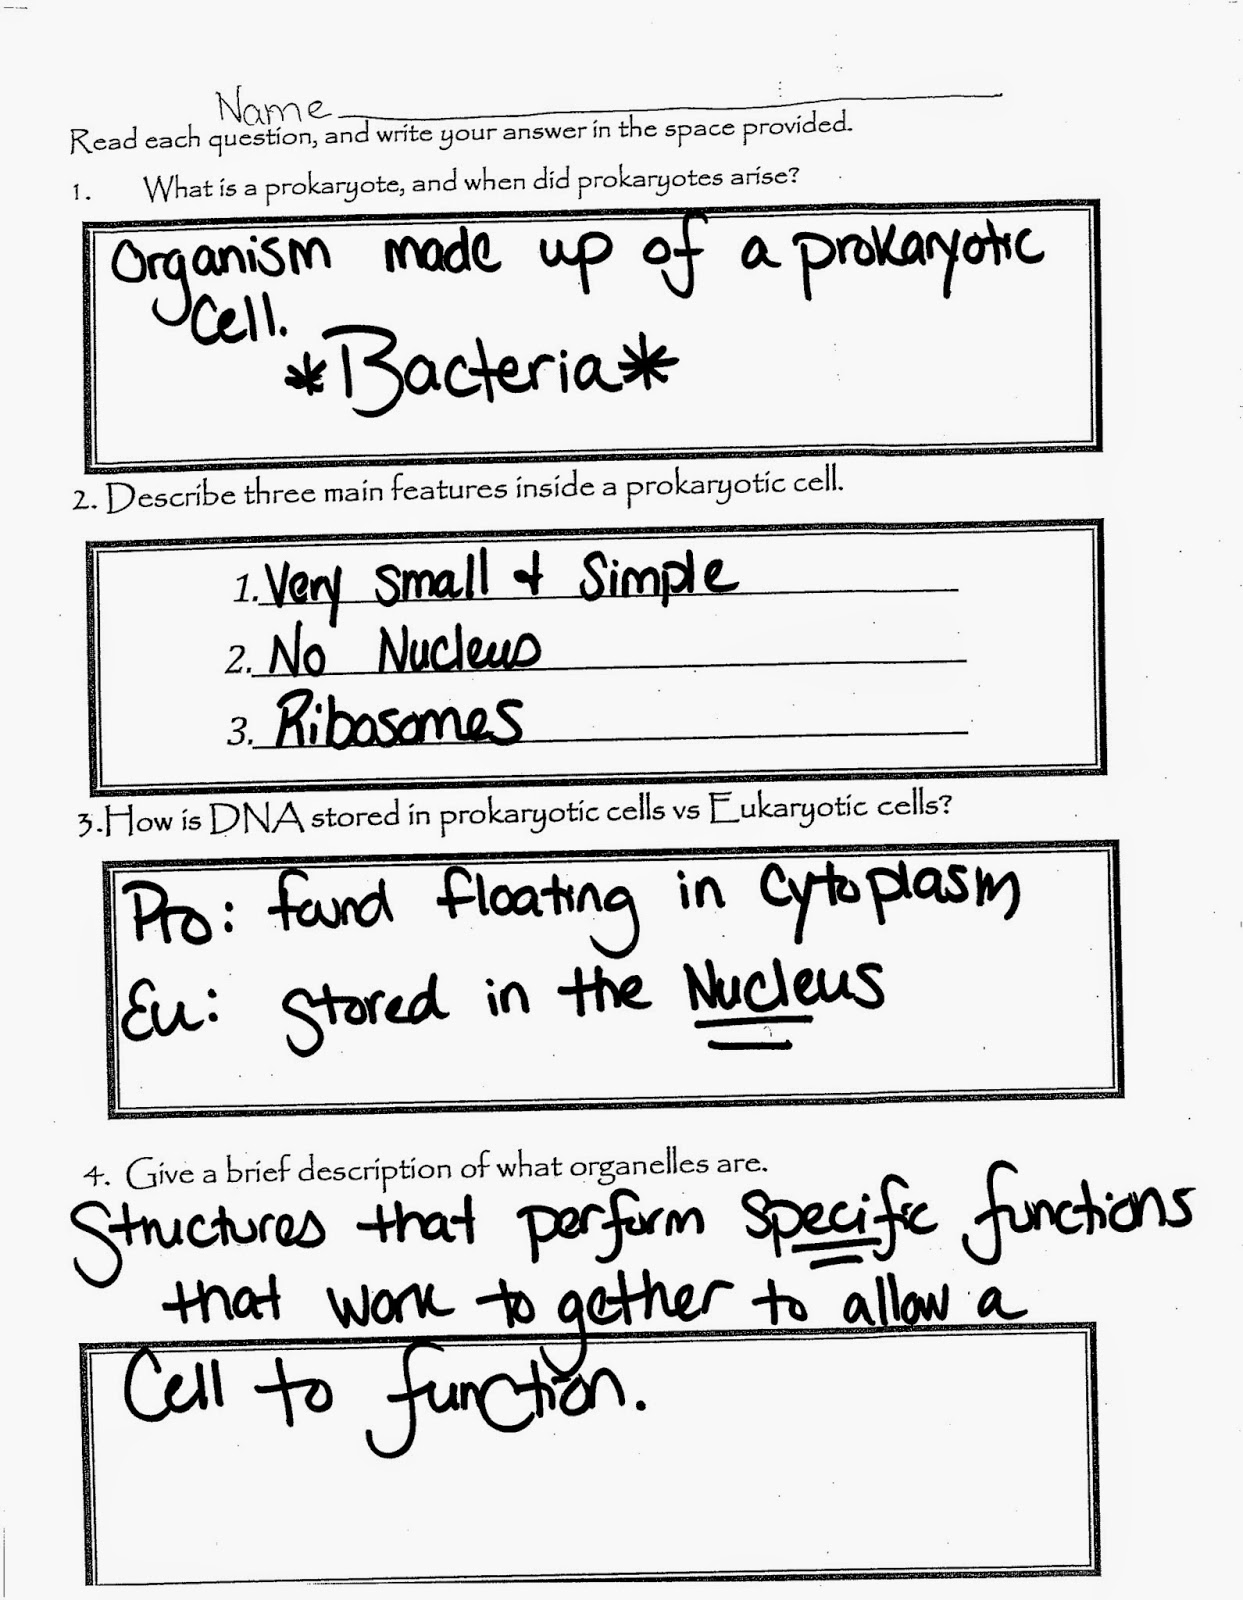 Name
Read each question, and write your answer in the space provided.
1. What is a prokaryote, and when did prokaryotes arise?
Organism made up of a prokaryotic
Cell.
*Bacteria*
2. Describe three main features inside a prokaryotic cell.
1. Very Small & Simple
2. No Nucleus
3. Ribosomes
3. How is DNA stored in prokaryotic cells vs Eukaryotic cells?
Pro: found floating in cytoplasm
Eu: Stored in the Nucleus
4. Give a brief description of what organelles are.
Structures that perform specific functions
that work to gether to allow a
Cell to function.